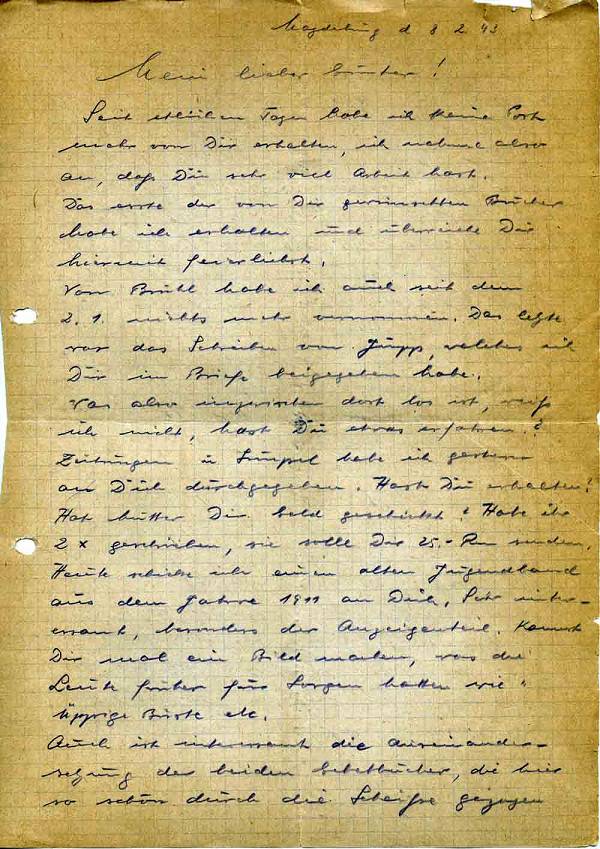 Magdeburg d 8 2. 43
Mein lieber Günter!
Seit etlichen Tagen habe ich keine Post
mehr von Dir erhalten, ich nehme also
an, daß Du sehr viel Arbeit hast.
Das erste der von Dir gewünschten Bücher
habe ich erhalten und überreiche Dir
hiermit feierlichst.
Von Brühl habe ich auch seit dem
2. 1. nichts mehr vernommen. Das letzte
war das Schreiben von Jupp, welches ich
Dir im Briefe beigegeben habe.
Was also inzwischen dort los ist, weiß
ich nicht, hast Du etwas erfahren?
Zeitungen u Simpel habe ich gestern
an Dich durchgegeben. Hast Du erhalten?
Hat Mutter Dir Geld geschickt? Habe ihr
2 x geschrieben, sie solle Dir 25.- Rm senden.
Heute schicke ich einen alten Jugendband
aus dem Jahre 1911 an Dich. Sehr inter-
essant, besonders der Anzeigenteil. Kannst
Dir mal ein Bild machen, was die
Leute früher für Sorgen hatten wie "
üppige Büste etc.
Auch ist interessant die Auseinander-
setzung der beiden Gebetbücher, die hier
so schön durch die Scheiße gezogen